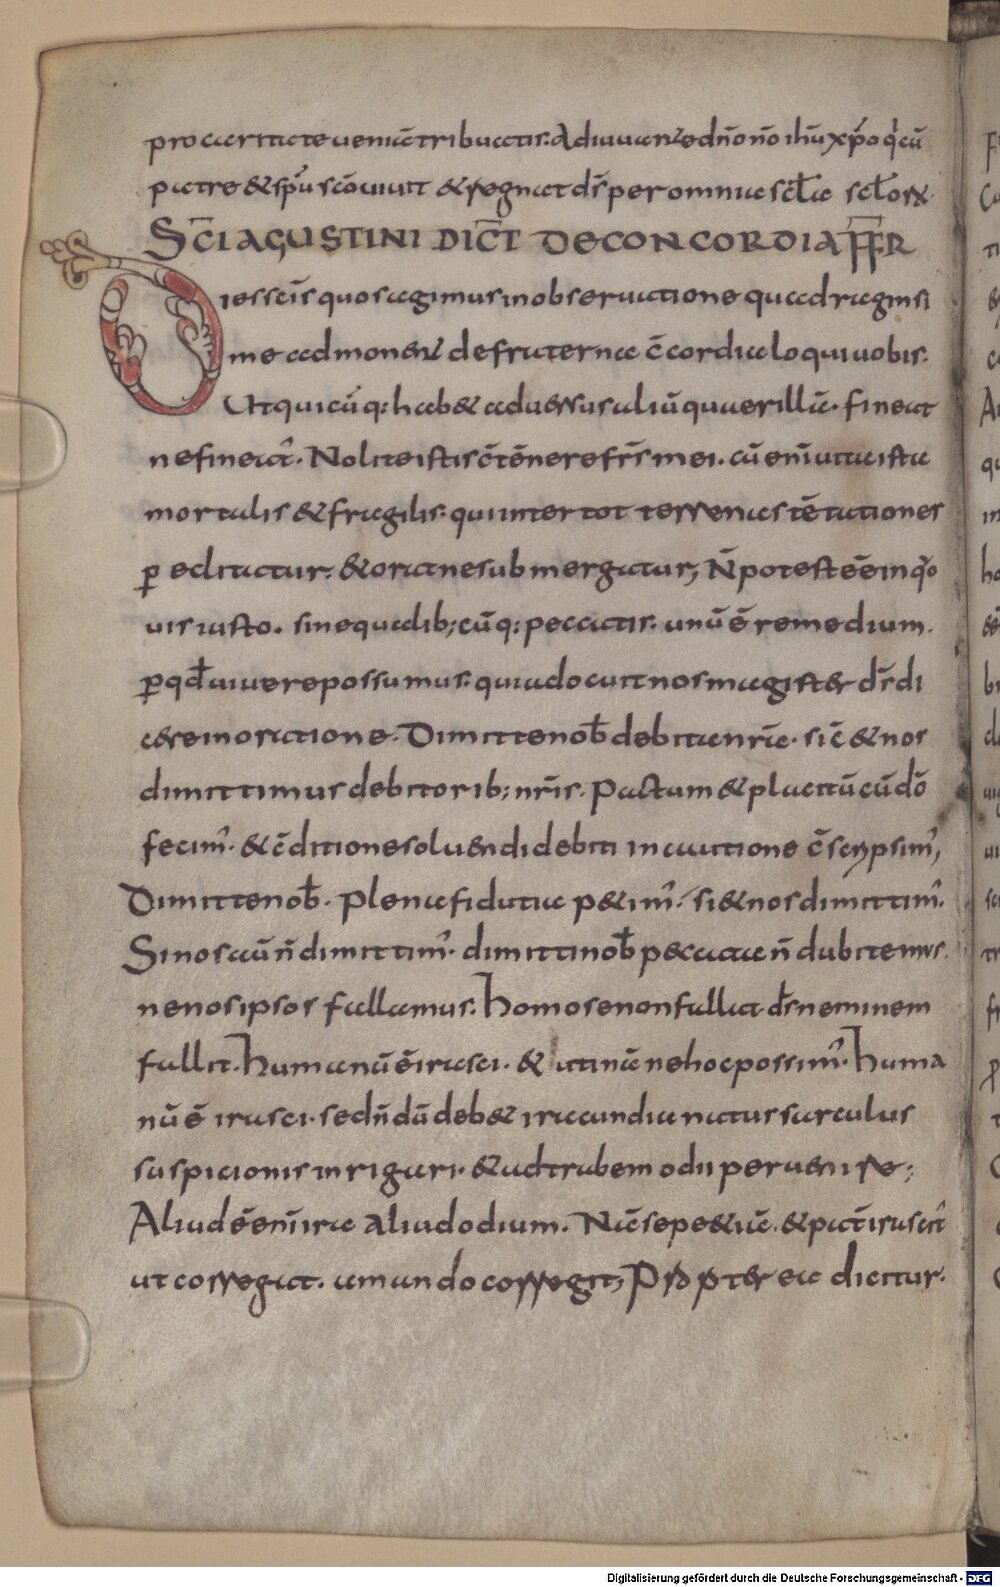 pro caritate ueniā tribuatis. Adiuuante dn̄o nr̄o ihū xp̄o q̄ cū
patre & sp̄u sc̄o uiuit & regnat ds̄ per omnia sc̄la sc̄lorꝝ
SC̄I AGUSTINI DIC̄T DE CONCORDIA FF̄R
Dies sc̄is quos agimus in obseruatione quadraginsi
me admonent de fraterna c̄cordia loqui uobis.
Ut quicūq: hab& aduersus aliū quaerillā. fineat
ne fineat̄. Nolite istis c̄tēnere fr̄s mei. cū enī uita ista
mortalis & fragilis. qui inter tot terrenas tētationes
ꝑeclitatur. & orat ne submergatur; N̄ potest eē in quo
uis iusto. sine quadlib; cūq: peccatis. unū ē remedium.
ꝑ qđ uiuere possumus. quia docuit nos magister ds̄ di
cere in oratione. Dimitte noƀ debita nr̄a. sic̄ & nos
dimittimus debitorib; nr̄is. Pactum & placitū cū dō
fecim̄. & c̄ditione soluendi debiti in cautione c̄scripsim̄;
Dimitte noƀ. Plena fiducia petim̄. si & nos dimittim̄.
Si nos aūn̄ dimittim̄. dimitti noƀ peccata n̄ dubitemus.
ne nos ipsos fallamus. homo se non fallat ds̄ neminem
fallit. humanū ē irasci. & utinā ne hoc possim̄. huma
nū ē irasci. sed n̄ dū deb& iracundia natus surculus
suspicionis inrigari. & ad trabem odii peruenire;
Aliud ē enī ira aliud odium. Nā sepe & iā. & pat̄ irascit̄
ut corregat. amando corregit; Propter ea dicitur.
Digitalisierung gefördert durch die Deutsche Forschungsgemeinschaft - DFG